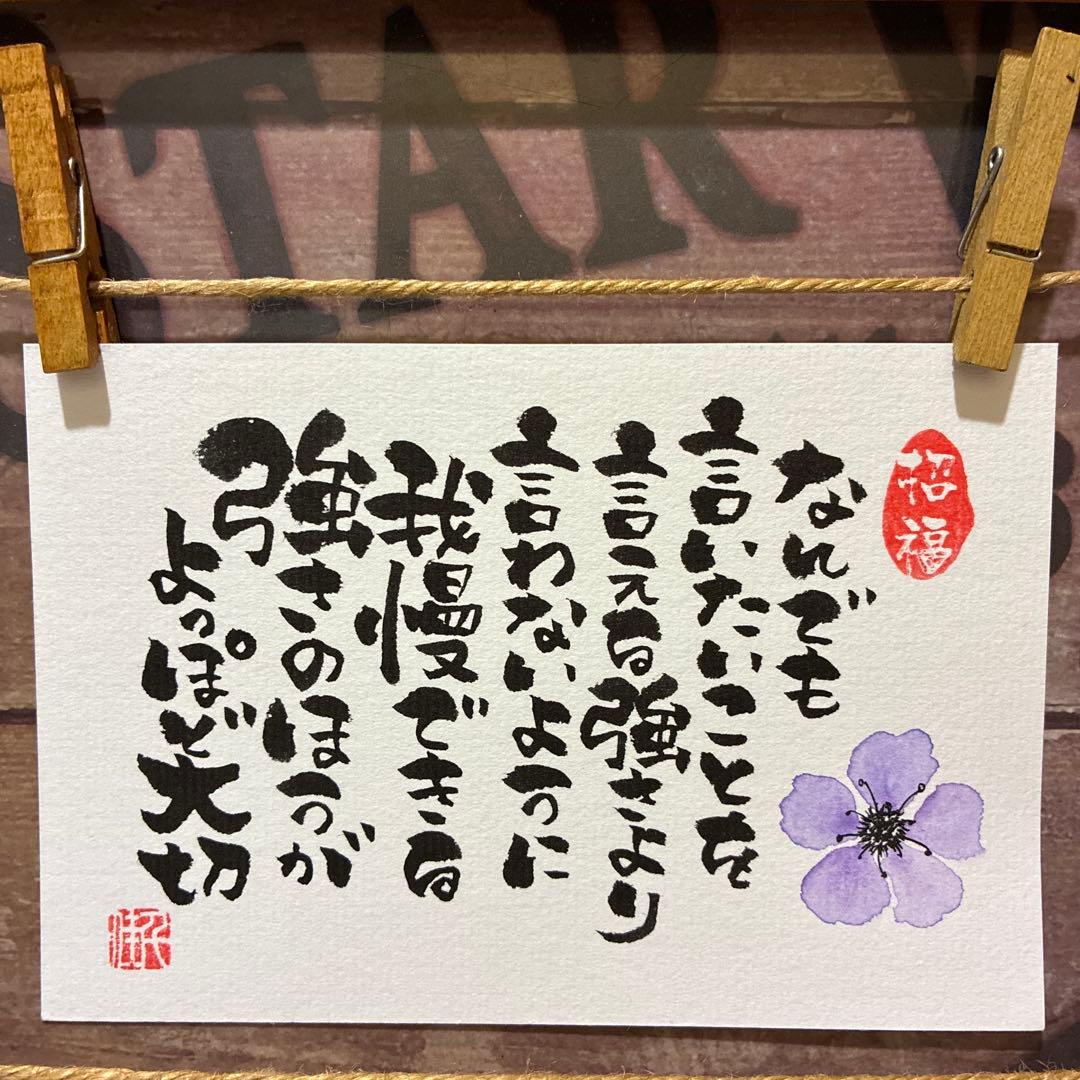 STAR W
招福
なんでも
言いたいことを
言える強さより
言わないように
我慢できる
強さのほうが
よっぽど大切